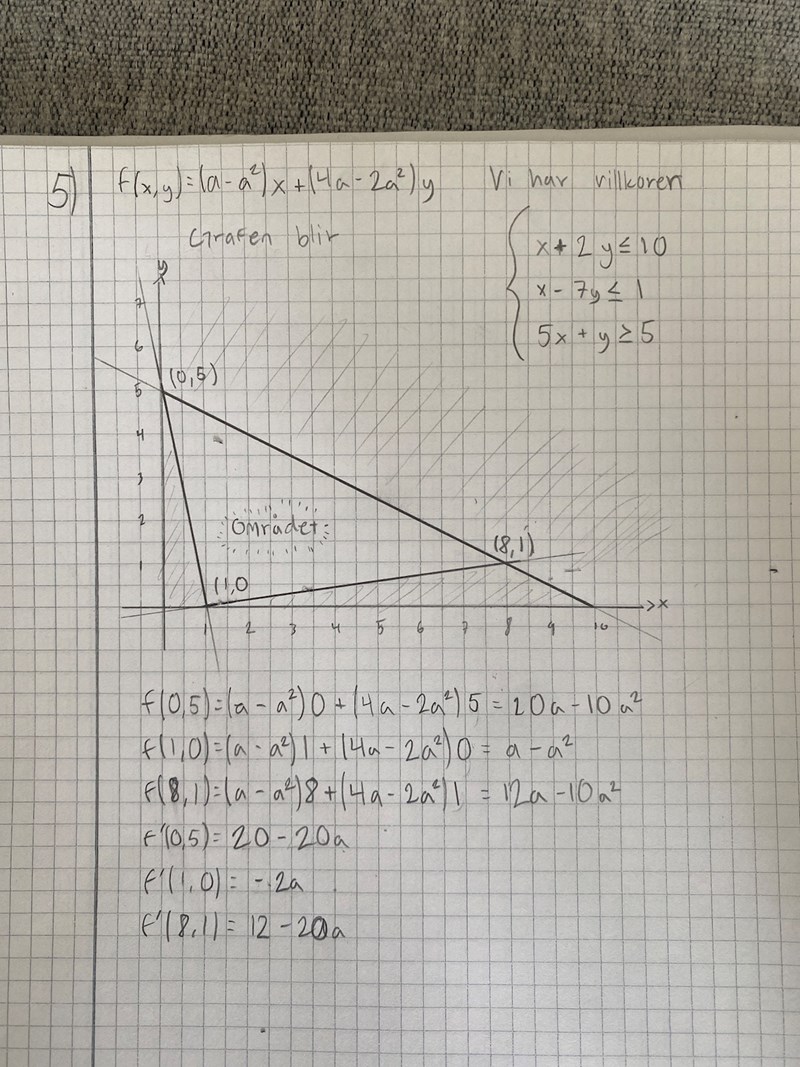 5) f(x,y)=(a-a²)x+(4a-2a²)y Vi har villkoren
Grafen blir
x+2y≤10
x-7y≤1
5x+y≥5
y
7
6
(0,5)
5
4
3
2
Området
(8,1)
1
(1,0
x
1 2 3 4 5 6 7 8 9 10
f(0,5)=(a-a²)0+(4a-2a²)5=20a-10a²
f(1,0)=(a-a²)1+(4a-2a²)0=a-a²
f(8,1)=(a-a²)8+(4a-2a²)1=12a-10a²
f'(0,5)=20-20a
f'(1,0)=-2a
f'(8,1)=12-20a